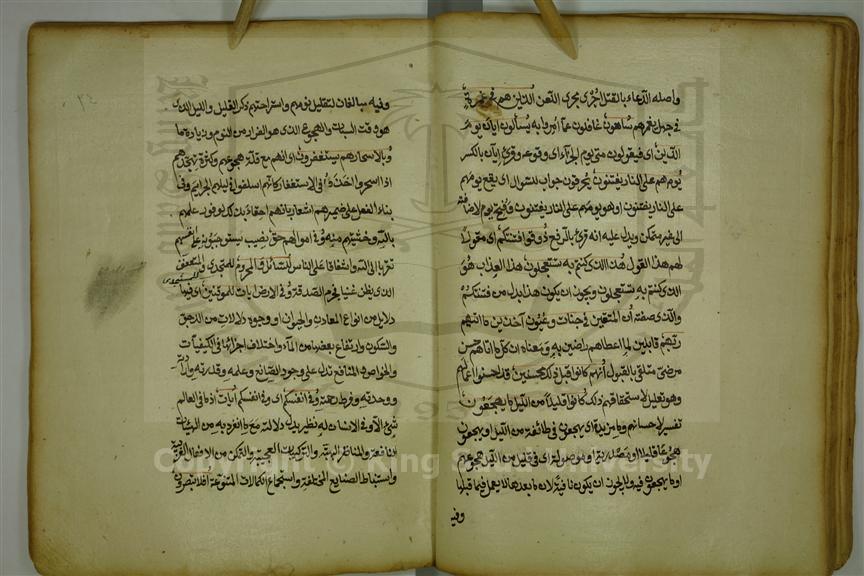 واصله الدعاء بالقتل اجرى مجرى اللعن الذين هم فى غمرة
فى جهل يغمرهم ساهون غافلون عما امروا به يسألون ايان يوم
الدين اى فيقولون متى يوم الجزاء اى وقوعه وقرئ ايان بالكسر
يوم هم على النار يفتنون يحرقون جواب للسؤال اى يقع يوم هم
على النار يفتنون او هو يوم هم على النار يفتنون وفتح يوم لاضافته
الى غير متمكن ويدل عليه انه قرئ بالرفع ذوقوا فتنتكم اى مقولا
لهم هذا القول هذا الذى كنتم به تستعجلون هذا العذاب هو
الذى كنتم به تستعجلون ويجوز ان يكون هذا بدل من فتنتكم
والذى صفته ان المتقين فى جنات وعيون آخذين ما اتاهم
ربهم قابلين لما اعطاهم راضين به ومعناه ان كل ما اتاهم حسن
مرضى متلقى بالقبول انهم كانوا قبل ذلك محسنين قد احسنوا اعمالهم
وهو تعليل لاستحقاقهم ذلك كانوا قليلا من الليل ما يهجعون
تفسير لاحسانهم وما مزيدة اى يهجعون فى طائفة من الليل او يهجعون
هجوعا قليلا او مصدرية او موصولة اى فى قليل من الليل هجوعهم
او ما يهجعون فيه ولا يجوز ان يكون نافية لان ما بعدها لا يعمل فيما قبلها
وفيه
وفيه مبالغات لتقليل نومهم واستراحتهم ذكر القليل والليل الذى
هو وقت السبات والهجوع الذى هو الفرار من النوم وزيادة ما
وبالاسحار هم يستغفرون اى انهم مع قلة هجوعهم وكثرة تهجدهم
اذا اسحروا اخذوا فى الاستغفار كانهم اسلفوا فى ليلهم الجرايم وفى
بناء الفعل على ضميرهم اشعار بانهم احقاء بذلك لوفور علمهم
بالله وخشيتهم منه وفى اموالهم حق نصيب يستوجبونه على انفسهم
تقربا الى الله واشفاقا على الناس للسائل والمحروم للمستجدى والمتعفف
الذى يظن غنيا فيحرم الصدقة وفى الارض ايات للموقنين اى فيها
دلايل من انواع المعادن والحيوان او وجوه دلالات من الدحو
والسكون وارتفاع بعضها من الماء واختلاف اجزائها فى الكيفيات
والخواص والمنافع تدل على وجود الصانع وعلمه وقدرته وارادته
ووحدته وفرط رحمته وفى انفسكم اى وفى انفسكم آيات اذ ما فى العالم
شئ الا وفى الانسان له نظير يدل دلالته مع ما انفرد به من الهيئات
النافعة والمناظر البهية والتركيبات العجيبة والتمكن من الافعال الغريبة
واستنباط الصنايع المختلفة واستجماع الكمالات المتنوعة افلا تبصرون
Copyright © King Saud University